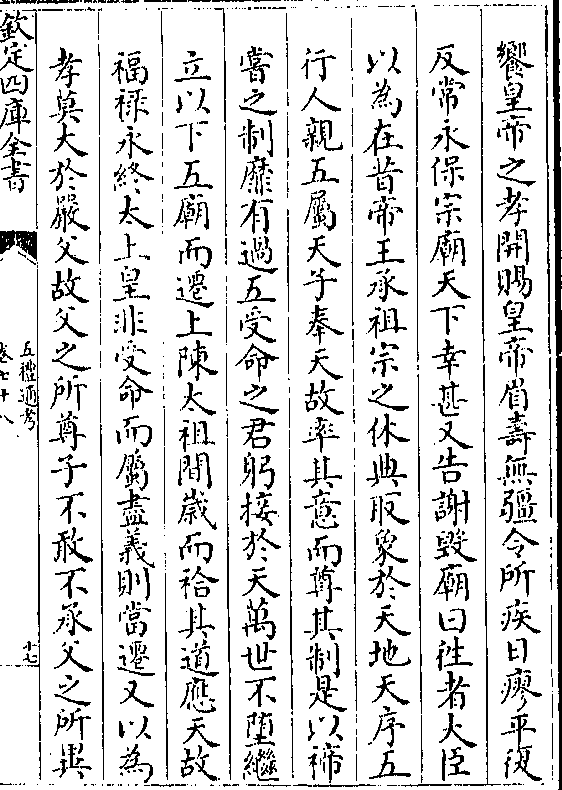 饗皇帝之孝開賜皇帝眉壽無疆令所疾日瘳平復
反常永保宗廟天下幸甚又告謝毀廟曰徃者大臣
以為在昔帝王承祖宗之休典取象於天地天序五
行人親五屬天子奉天故率其意而尊其制是以禘
嘗之制靡有過五受命之君躬接於天萬世不墮繼
立以下五廟而遷上陳太祖間歲而祫其道應天故
福祿永終太上皇非受命而屬盡義則當遷又以為
孝莫大於嚴父故父之所尊子不敢不承父之所異
欽定四庫全書
五禮通考
卷七十八
十七